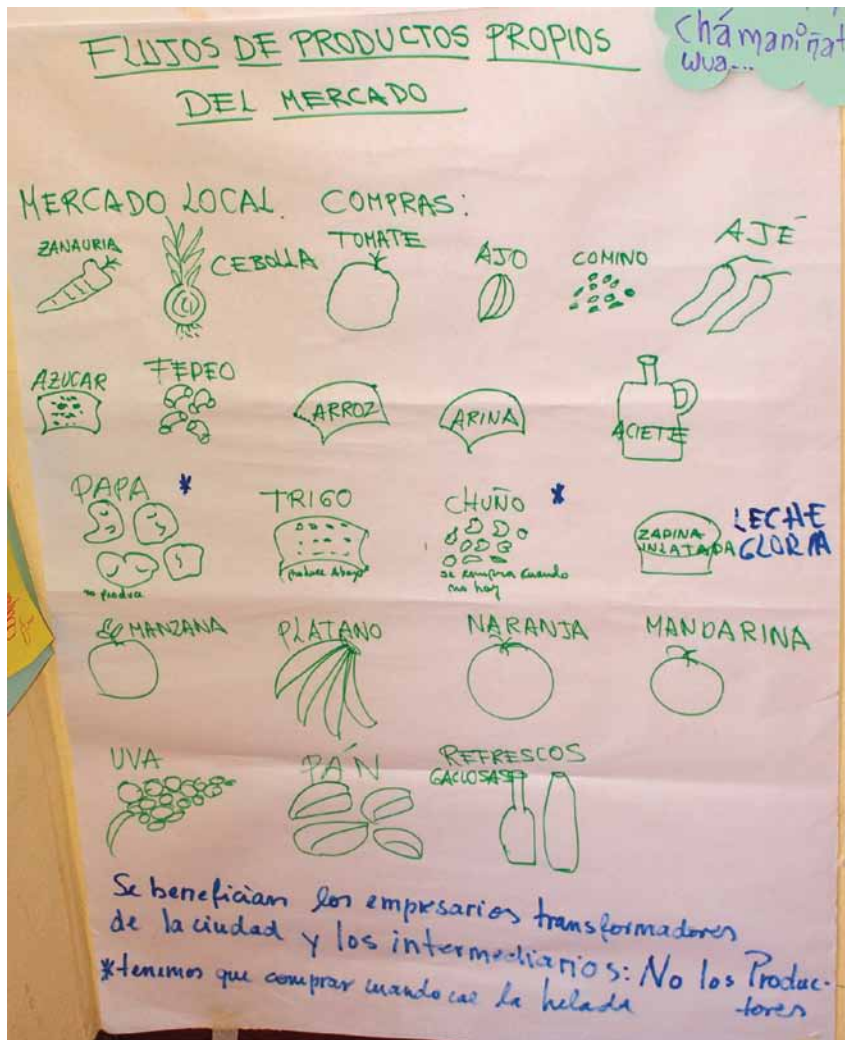 Chámaniñat
wua...
FLUJOS DE PRODUCTOS PROPIOS
DEL MERCADO
MERCADO LOCAL. COMPRAS:
ZANAURIA CEBOLLA TOMATE AJO COMINO AJÉ
AZUCAR FEDEO ARROZ ARINA ACIETE
PAPA * TRIGO CHUÑO * ZAPINA INLATADA LECHE GLORIA
no produce
produce Abajo
se compra cuando
no hay
MANZANA PLATANO NARANJA MANDARINA
UVA PÁN REFRESCOS
GACIOSAS
Se benefician los empresarios transformadores
de la ciudad y los intermediarios: No los Produc-
tores
*tenemos que comprar cuando cae la helada